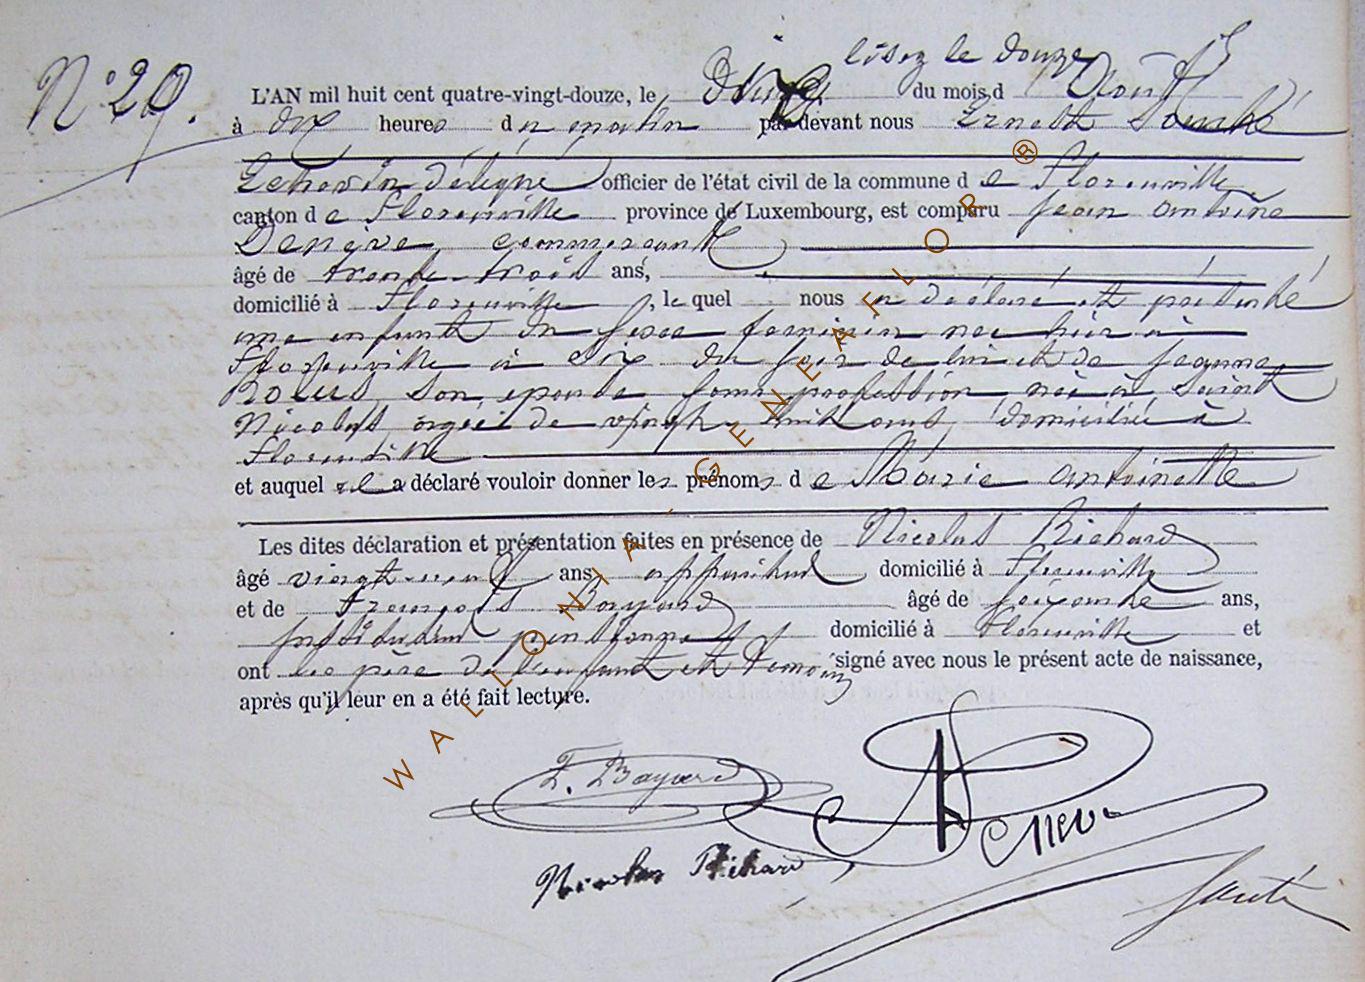 N° 29.
lisez le douze
L'AN mil huit cent quatre-vingt-douze, le douze du mois d'Août
à dix heures du matin par devant nous Ernest Santé
Echevin délégué officier de l'état civil de la commune de Florenville
canton de Florenville province de Luxembourg, est comparu Jean Antoine
Denève, commerçant
âgé de trente-trois ans,
domicilié à Florenville, lequel nous a déclaré et présenté
une enfant du sexe féminin née hier à
Florenville à six du soir de lui et de Jeanne
son épouse sans profession née à Saint
Nicolas, âgée de vingt huit ans, domiciliée à
Florenville
et auquel il a déclaré vouloir donner les prénoms de Marie Antoinette
Les dites déclaration et présentation faites en présence de Nicolas Richard
âgé vingt-neuf ans domicilié à Florenville
et de François Bayard âgé de soixante ans,
pensionné domicilié à Florenville et
ont les père de l'enfant et témoins signé avec nous le présent acte de naissance,
après qu'il leur en a été fait lecture.
F. Bayard
Denève
Nicolas Richard
Santé
WALLONIA - GENEAFLOR ®